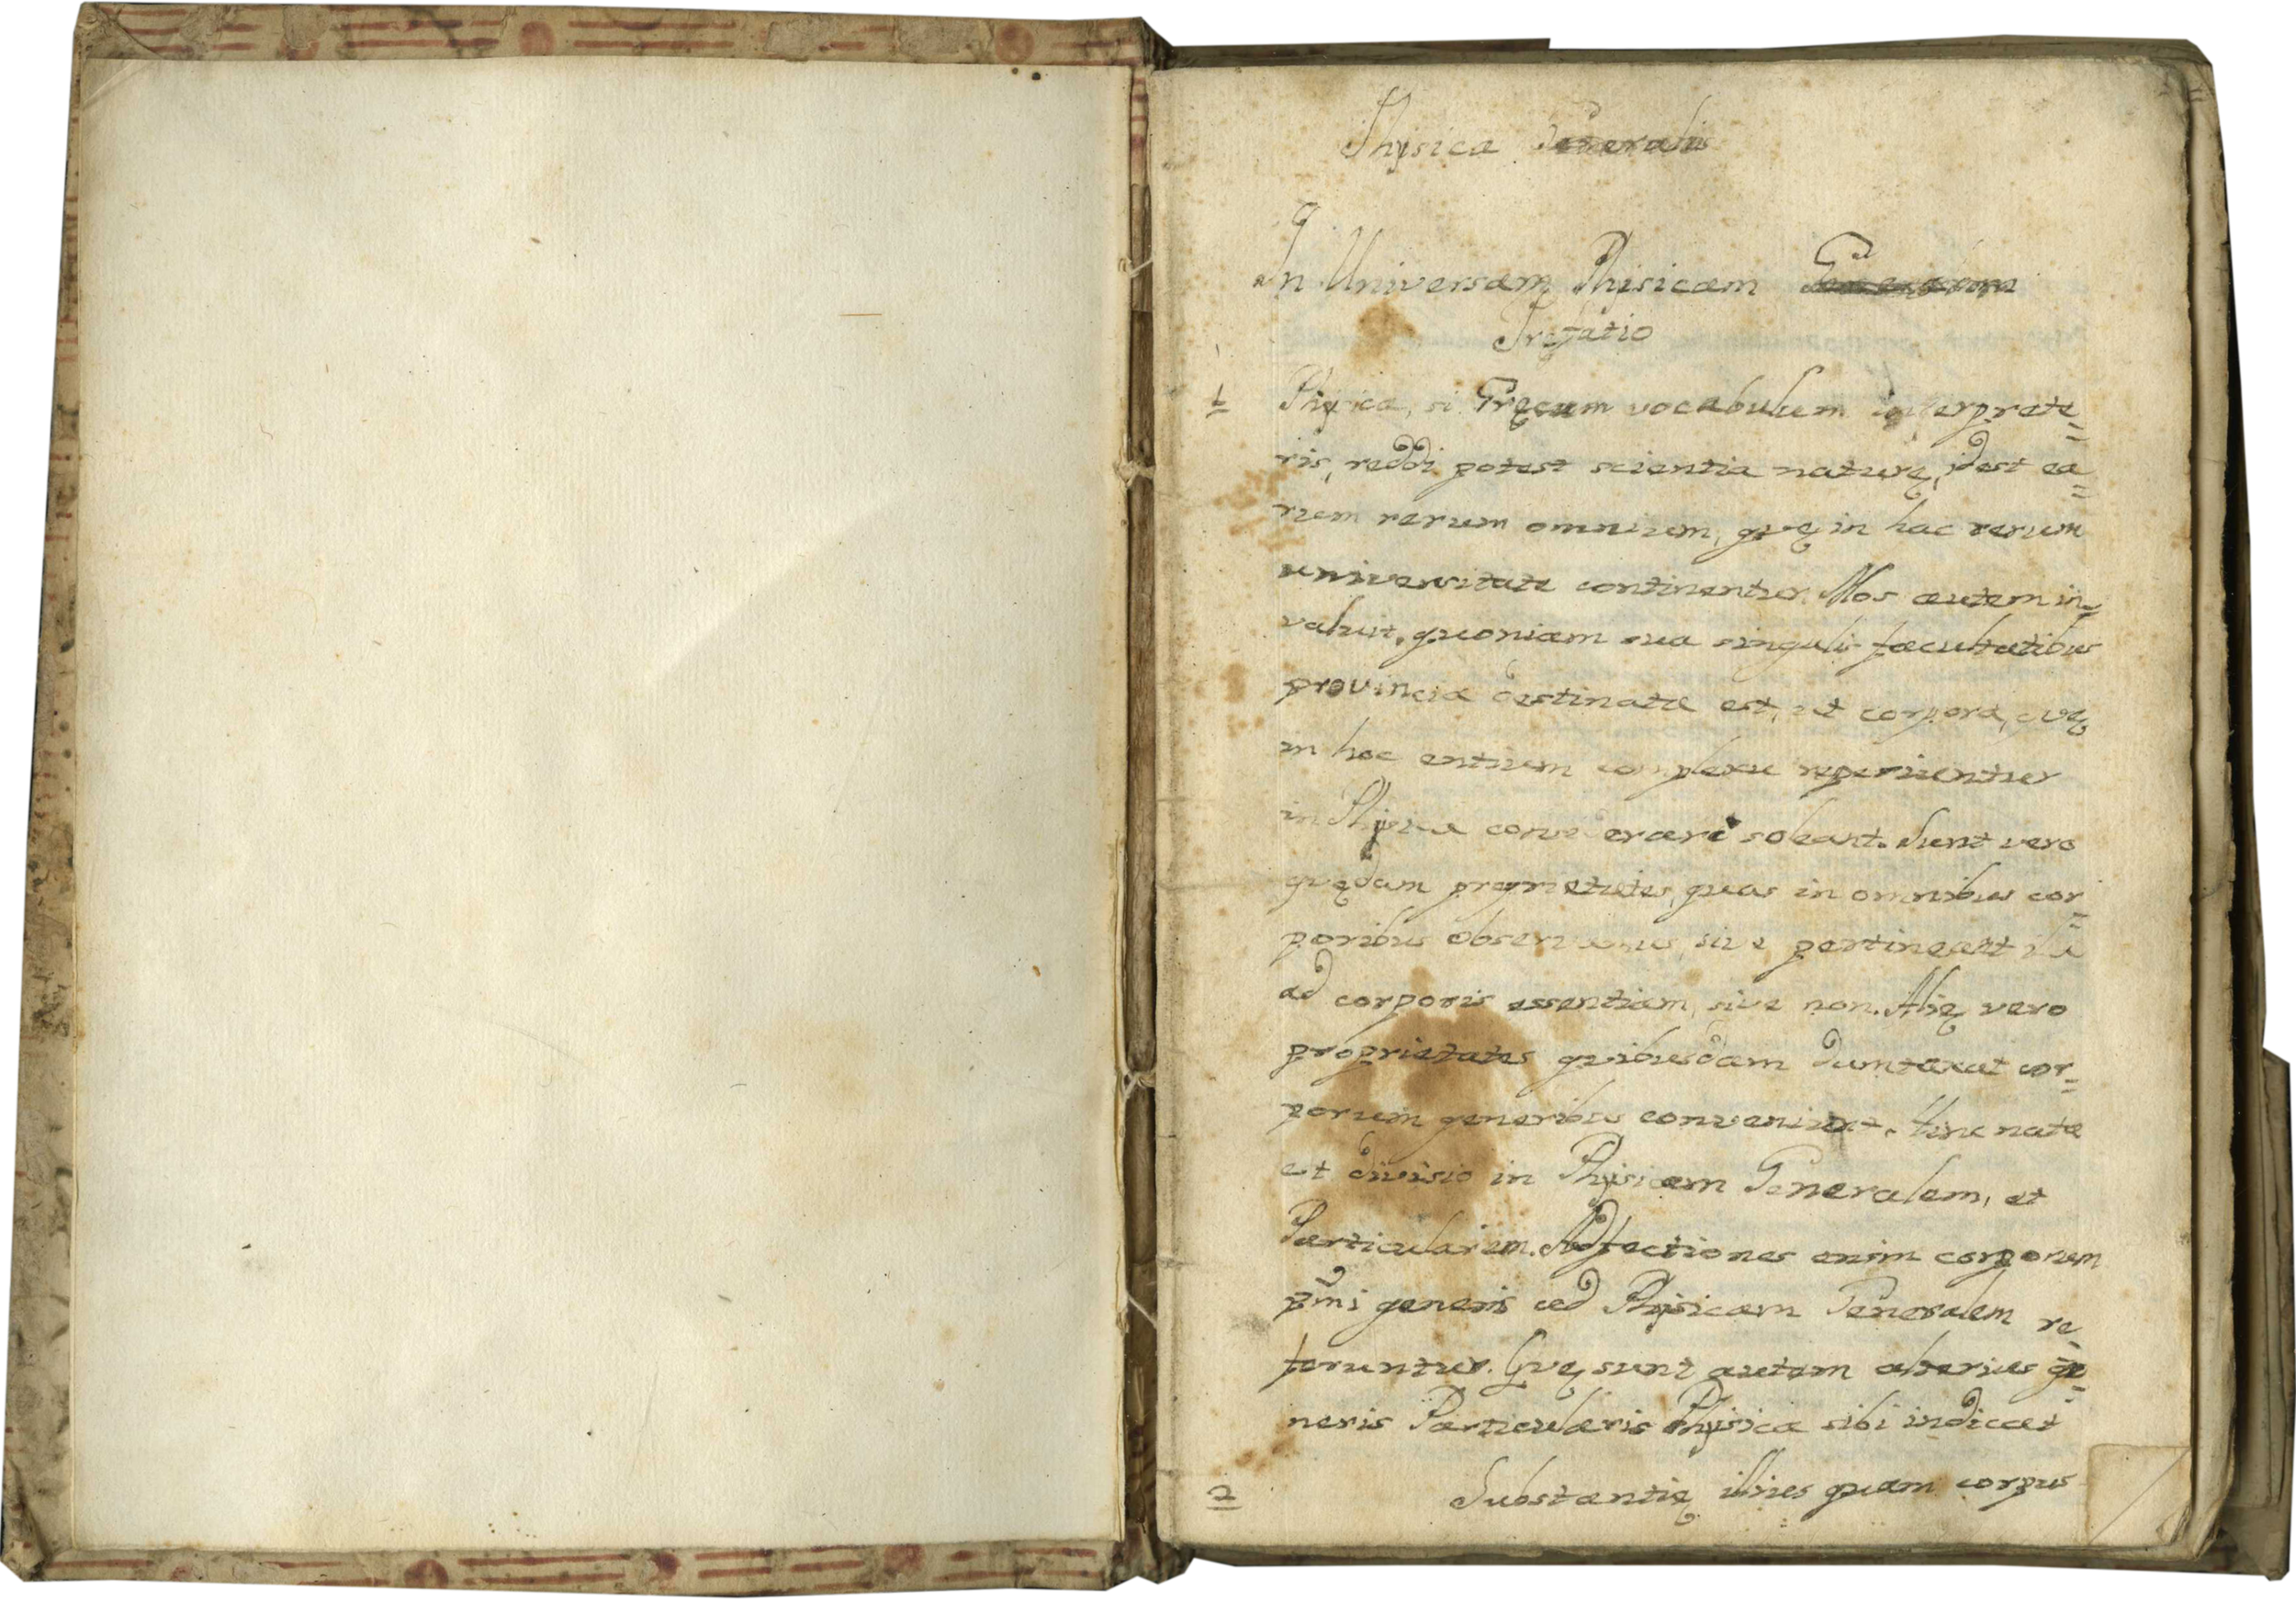 Physica Generalis
In Universam Phisicam
Prefatio
1 Phisica, si Gręcum vocabulum interprete=
ris, reddi potest scientia naturę, idest ea=
rum rerum omnium, quę in hac rerum
universitate continentur. Mos autem in=
valuit, quoniam sua singulis facultatibus
provincia destinata est, ut corpora, quę
in hoc entium complexu reperiuntur
in Physica considerari soleant. Sunt vero
quędam proprietates, quas in omnibus cor=
poribus observamus, sive pertineant
ad corporis essentiam, sive non. Alię vero
proprietates quibusdam dumtaxat cor=
porum generibus conveniunt. Hinc nata
et divisio in Physicam Generalem, et
Particularem. Adfectiones enim corporum
pm̃i generis ad Physicam Generalem re=
feruntur. Quę sunt autem alterius ge=
neris Particularis Physica sibi indicat
2 Substantię illius quam corpus